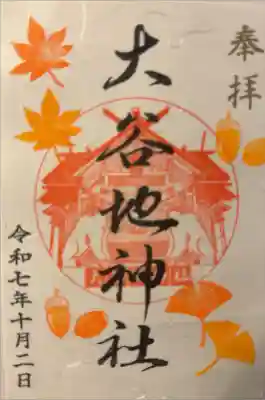 奉拝
大谷地神社
令和七年十月二日